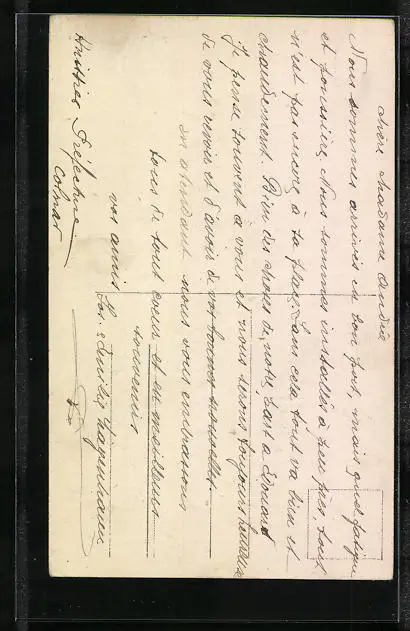 Chère Madame André
Nous sommes arrivés en bon port, mais quel fatigue
et poussière. Nous sommes installés à peu près, tout
n'est pas encore à sa place, sans cela tout va bien et
chaudement. Bien des choses de notre part à
Je pense souvent à vous et nous serons toujours heureux
de vous revoir et d'avoir de vos bonnes nouvelles.
En attendant nous vous embrassons
tous de tout cœur et en meilleurs
souvenirs
vos amis
Préfecture
Colmar